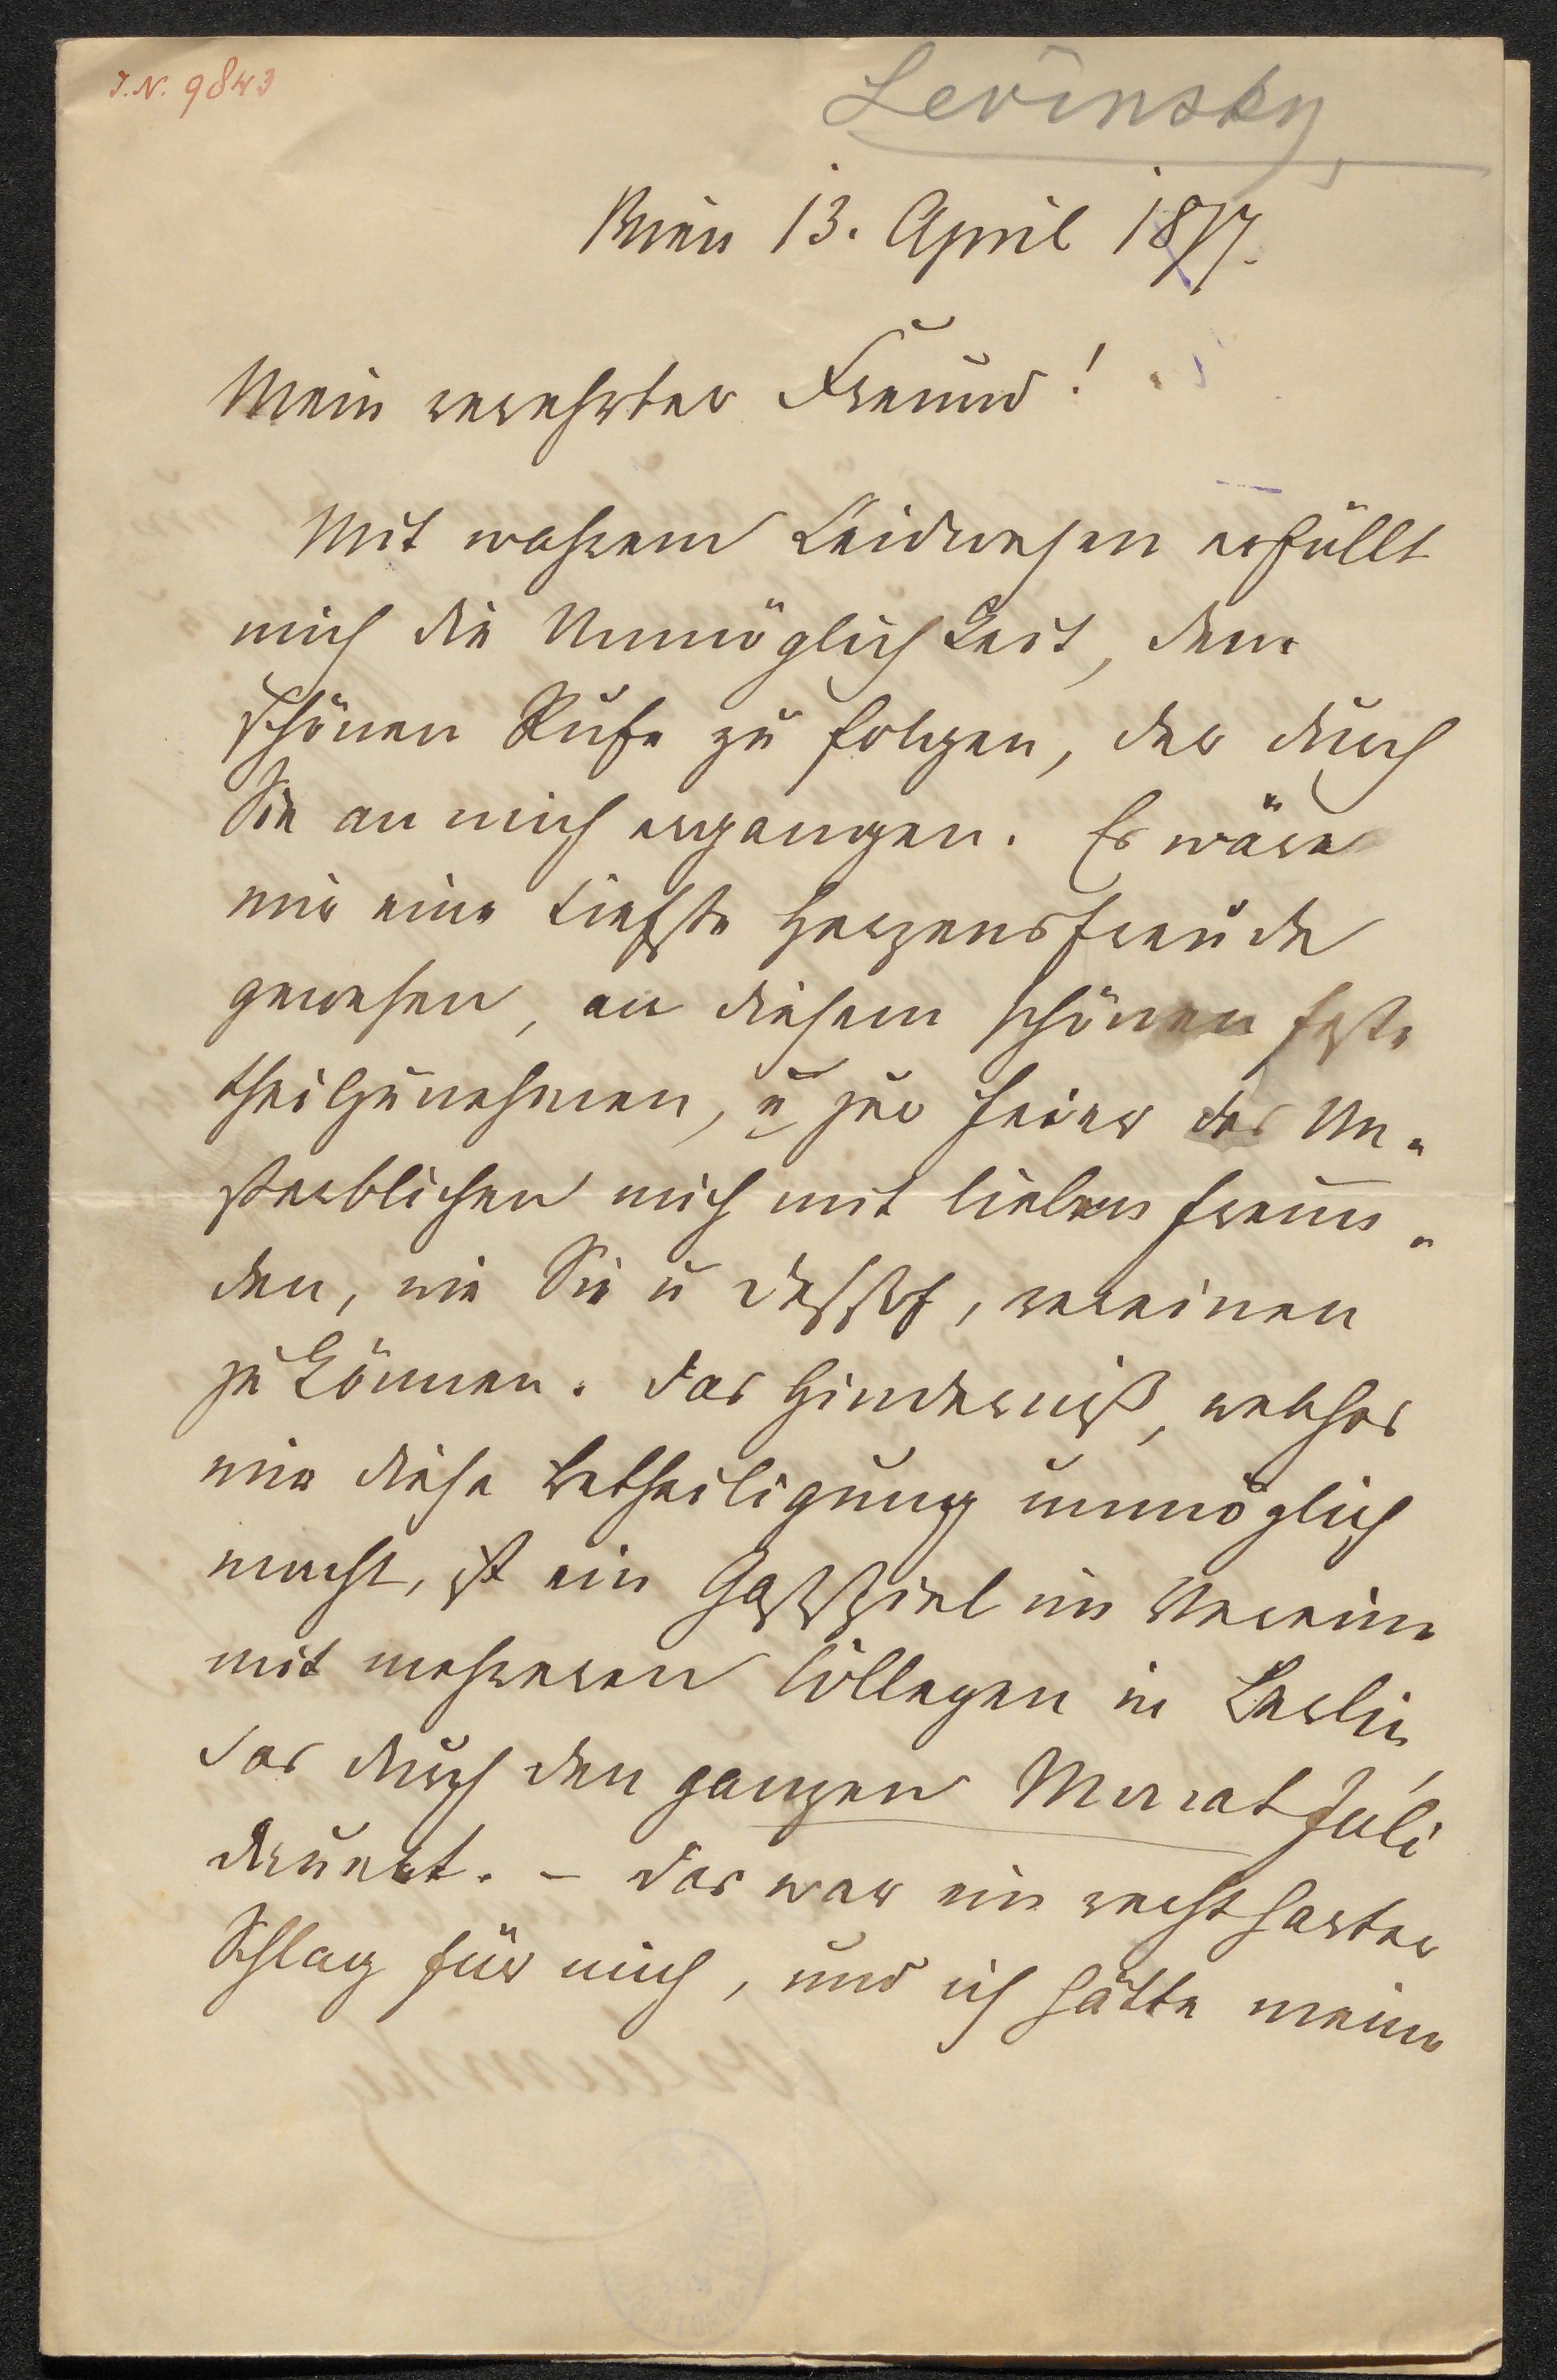 I.N. 9843
Levinsky
Wien 13. April 1877.
Mein verehrter Freund!
Mit wahrem Leidwesen erfüllt
mich die Unmöglichkeit, dem
schönen Rufe zu folgen, der durch
Sie an mich ergangen. Es wäre
mir eine tiefste Herzensfreude
gewesen, an diesem schönen Feste
theilzunehmen, u zur Feier des Un-
sterblichen mich mit lieben Freun-
den, wie Sie u Dessoff, vereinen
zu können. Das Hinderniß, welches
mir diese Betheiligung unmöglich
macht, ist ein Gastspiel im Vereine
mit mehreren Collegen in Berlin,
das durch den ganzen Monat Juli
dauert. – Das war ein recht harter
Schlag für mich, und ich hätte meine